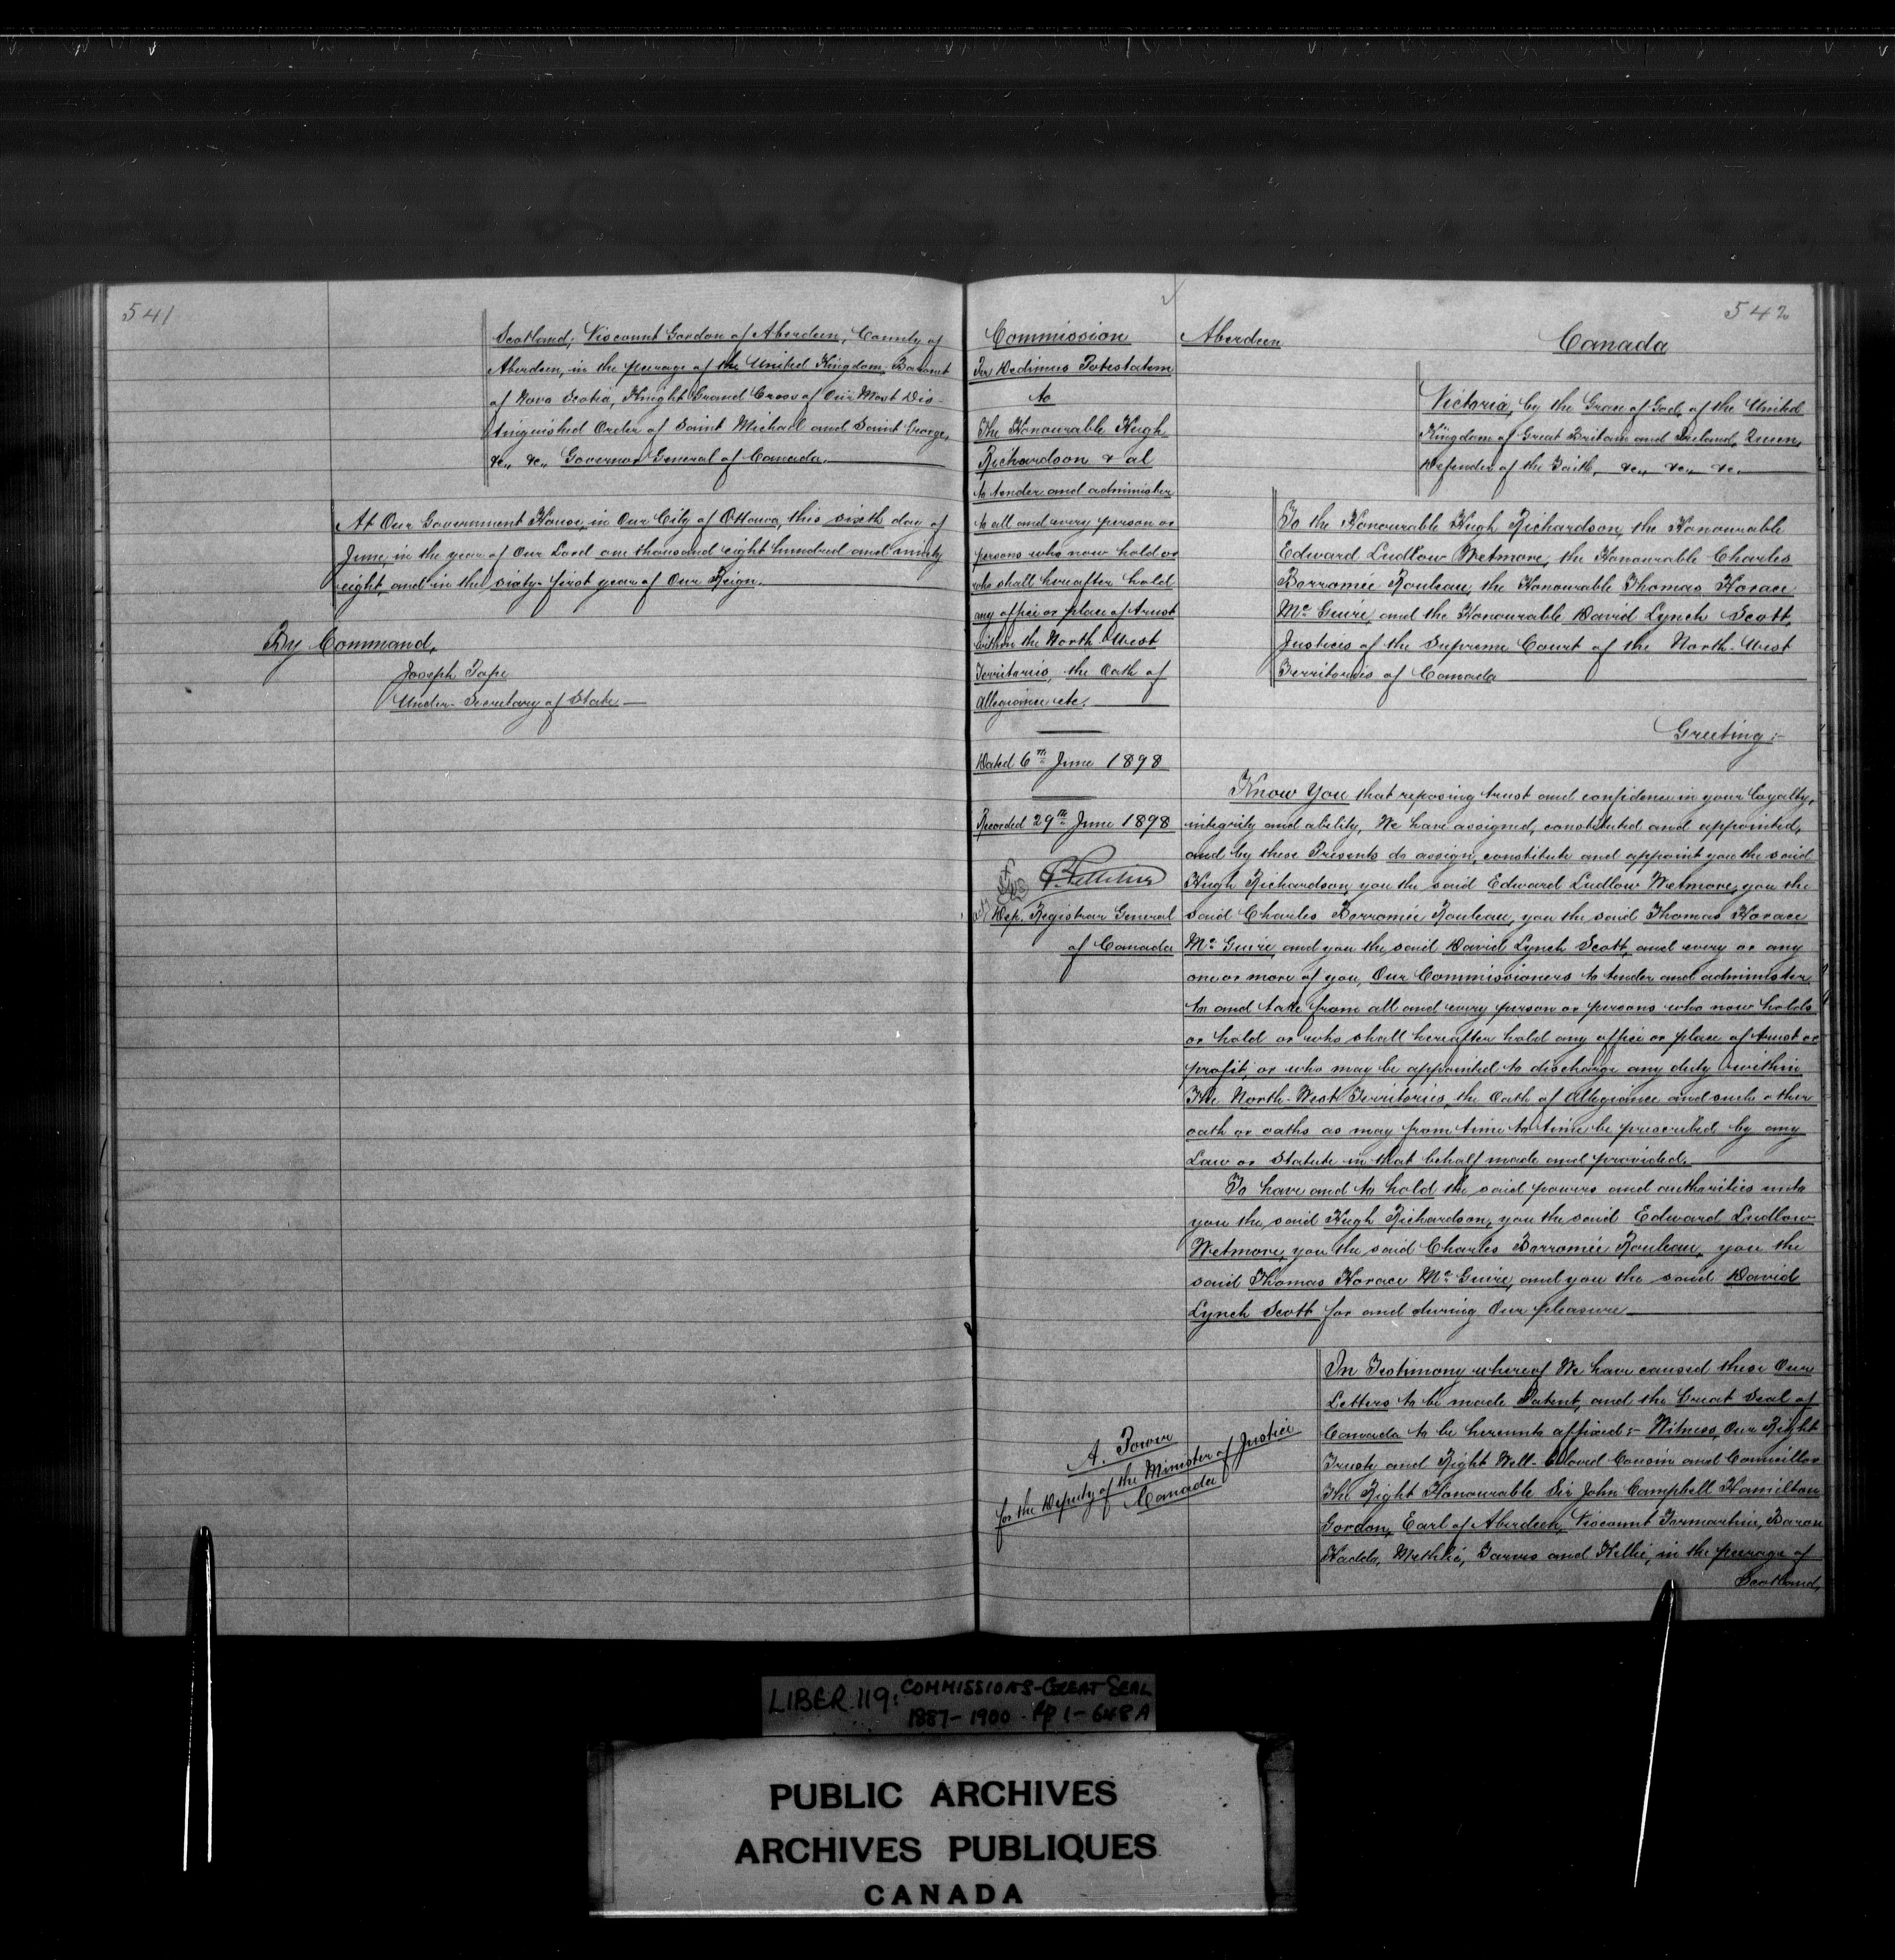 541
Scotland; Viscount Gordon of Aberdeen, County of
Aberdeen, in the peerage of the United Kingdom; Baronet
of Nova Scotia, Knight Grand Cross of Our Most Dis-
tinguished Order of Saint Michael and Saint George,
&c., &c., Governor General of Canada.
At Our Government House, in Our City of Ottawa, this sixth day of
June, in the year of Our Lord one thousand eight hundred and ninety
eight, and in the sixty-first year of Our Reign.
By Command,
Joseph Pope
Under-Secretary of State
542
Commission
For Dedimus Potestatem
to
The Honourable Hugh
Richardson & al
to tender and administer
to all and every person or
persons who now hold or
who shall hereafter hold
any office or place of trust
within the North West
Territories, the Oath of
Allegiance etc.
Dated 6th June 1898
Recorded 29th June 1898
Dep. Registrar General
of Canada
A. Power
for the Deputy of the Minister of Justice
Canada
Aberdeen
Canada
Victoria, by the Grace of God, of the United
Kingdom of Great Britain and Ireland, Queen,
Defender of the Faith, &c., &c., &c.
To the Honourable Hugh Richardson, the Honourable
Edward Ludlow Wetmore, the Honourable Charles
Borromée Rouleau, the Honourable Thomas Horace
Mc Guire, and the Honourable David Lynch Scott,
Justices of the Supreme Court of the North-West
Territories of Canada
Greeting:-
Know You that reposing trust and confidence in your loyalty,
integrity and ability, We have assigned, constituted and appointed,
and by these Presents do assign, constitute and appoint you the said
Hugh Richardson, you the said Edward Ludlow Wetmore, you the
said Charles Borromée Rouleau, you the said Thomas Horace
Mc Guire, and you the said David Lynch Scott, and every or any
one or more of you, Our Commissioners to tender and administer
to and take from all and every person or persons who now holds
or hold or who shall hereafter hold any office or place of trust or
profit, or who may be appointed to discharge any duty within
The North-West Territories, the Oath of Allegiance and such other
oath or oaths as may from time to time be prescribed by any
Law or Statute in that behalf made and provided.
To have and to hold the said powers and authorities unto
you the said Hugh Richardson, you the said Edward Ludlow
Wetmore, you the said Charles Borromée Rouleau, you the
said Thomas Horace Mc Guire, and you the said David
Lynch Scott for and during Our pleasure
In Testimony whereof We have caused these Our
Letters to be made Patent, and the Great Seal of
Canada to be hereunto affixed:- Witness, Our Right
Trusty and Right Well-beloved Cousin and Councillor
The Right Honourable Sir John Campbell Hamilton
Gordon, Earl of Aberdeen, Viscount Formartine, Baron
Haddo, Methlic, Tarves and Kellie, in the peerage of
Scotland,
LIBER.119: COMMISSIONS-GREAT SEAL
1887-1900. Pp 1-648A
PUBLIC ARCHIVES
ARCHIVES PUBLIQUES
CANADA